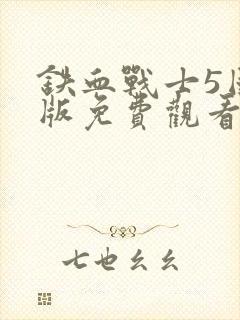 鉄血戰士5
版免費觀看
七也幺幺